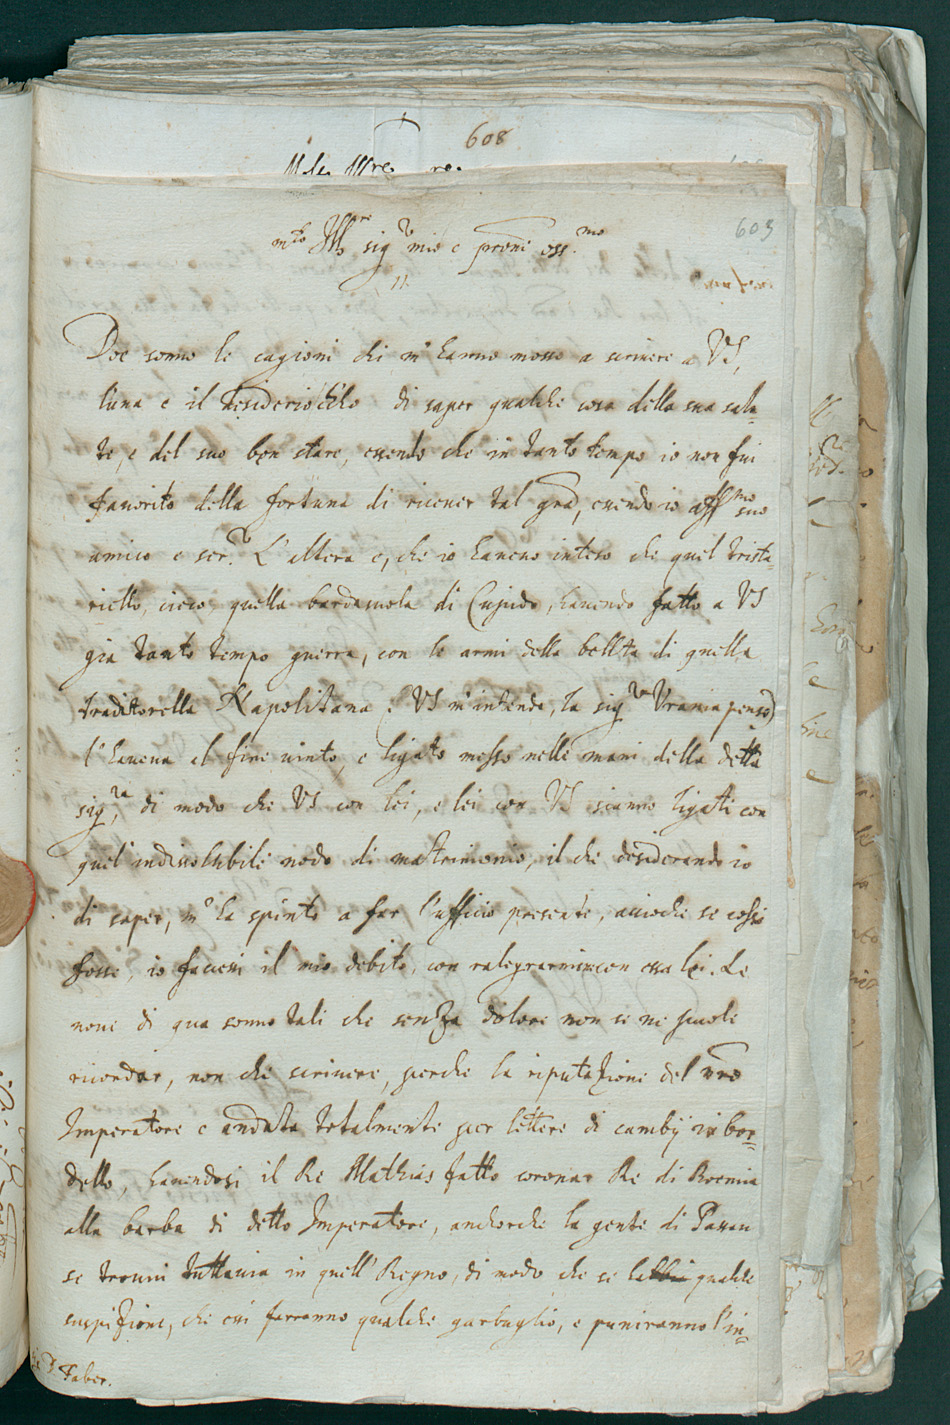 608
609
m.to Ill.re sig.r mio e prōne oss.mo
Doe sonno le cagioni chi m'hanno mosso a scrivere a VS,
l'una e il desiderio di saper qualche cosa della sua salu-
te, e del suo ben stare, essendo che in tanto tempo io non fui
favorito della fortuna di ricever tal gra, essendo io aff.mo suo
amico e ser.r L'altera e, che io havevo inteso che quel trista-
riello, cieco, quella bardasuola di Cupido, havendo fatto a VS
gia tanto tempo guerra, con le armi della bellta di quella
traditorella Napolitana (VS m'intende, la sig.ra Urania penso)
l'haveva al fine vinto, e ligato messo nelle mani della detta
sig.ra, di modo che VS con lei, e lei con VS sianno ligati con
quel' indissolubile nodo di mattrimonio, il che desiderando io
di saper, m'ha spinto a far l'ufficio presente, accioche se cossi
fosse, io facessi il mio debito, con ralegrarmi con essa lei. Le
nove di qua sonno tali che senza dolore non se ne puole
ricordar, non che scrivere, perche la riputazione del nro
Imperatore e andata totalmente per lettere di cambij in bor-
dello, havendosi il Re Mathias fatto coronar Re di Boemia
alla barba di detto Imperatore, anchorche la gente di Passau
se trouvi tuttavia in quell' Regno, di modo che se habbia qualche
suspizione, che esi farranno qualche garbuglio, e puniranno l'in-
Faber.